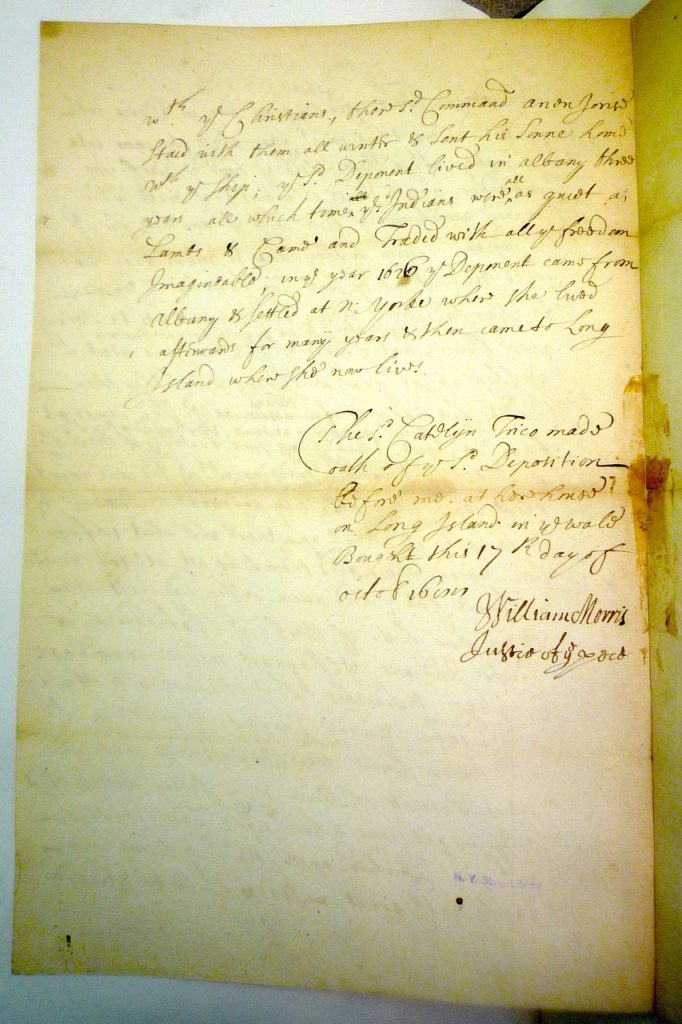 wth ye Christians, there sd Command anen Jorise
staid with them all winter & sent his sonne home
wth ye ship; ye sd Deponent lived in albany three
years all which time ye sd Indians were all as quiet as
Lambs & Came and Traded with all ye freedom
Imagineable; in ye year 1626 ye Deponent came from
Albany & settled at N: Yorke where she lived
afterwards for many years & then came to Long
Island where she now lives.
The sd Catelyn Trico made
oath of ye sd Deposition
before me. at her house
on Long Island in ye wale
Bought this 17th day of
octob
William Morris
Justice of ye pece
N. Y. State Library